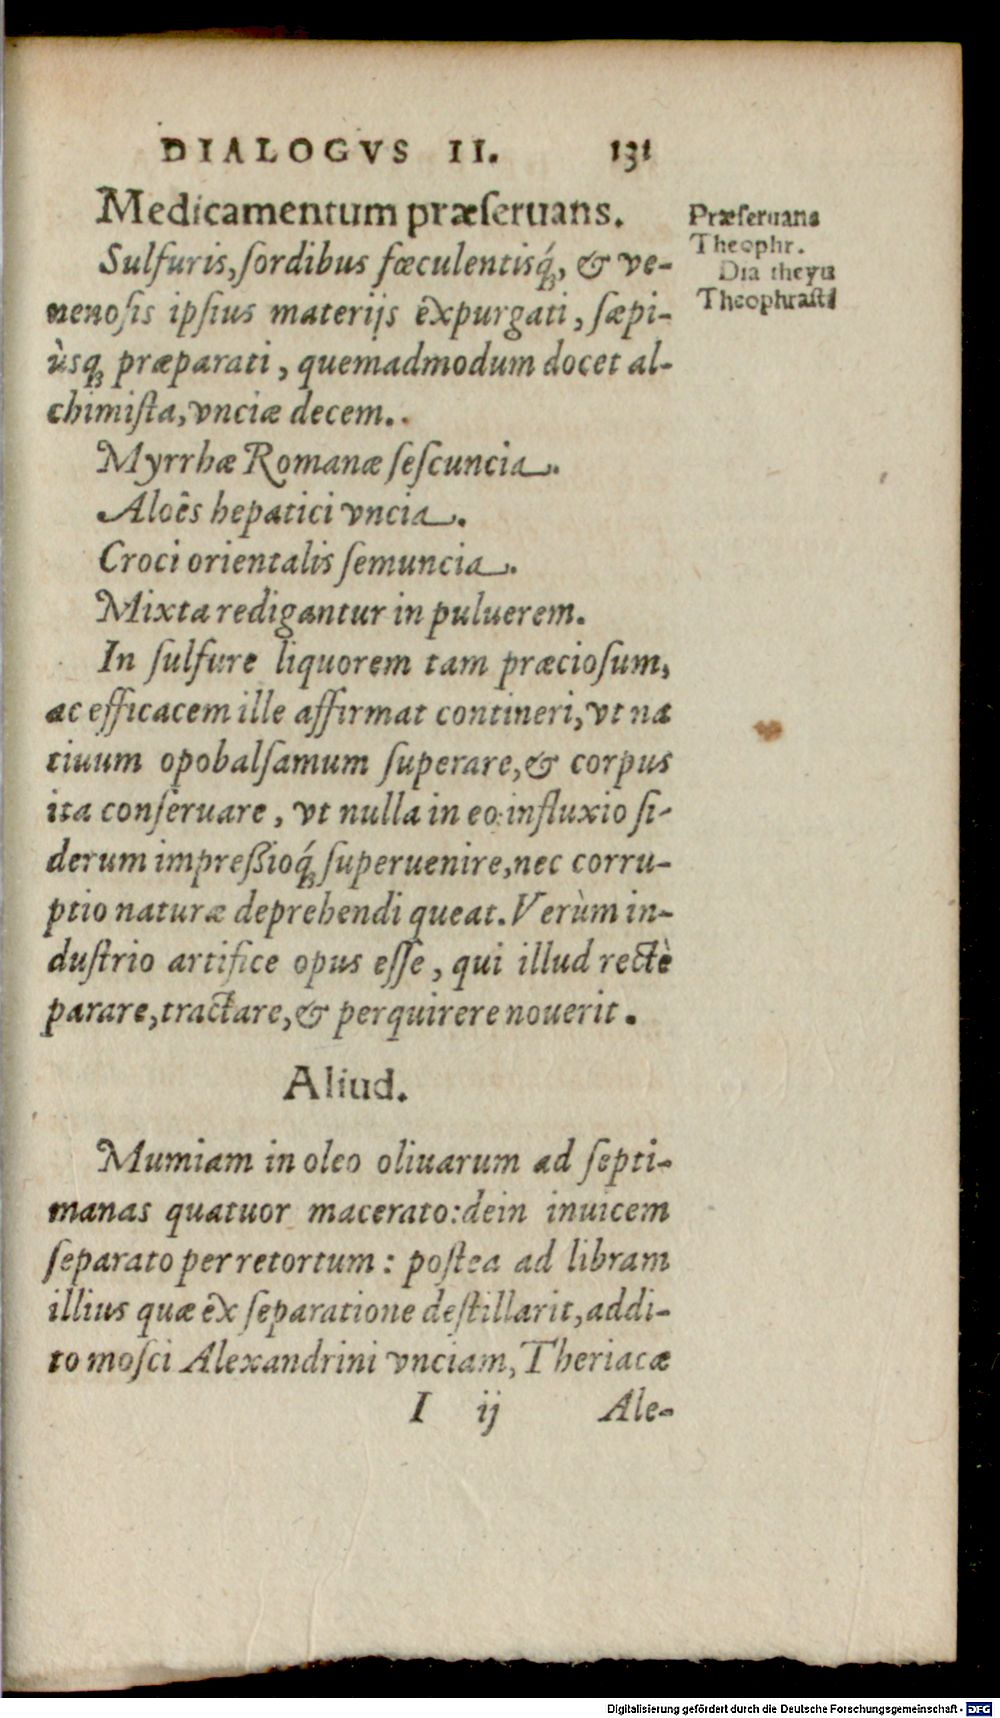 DIALOGVS II. 131
Medicamentum præſeruans.
Præſeruans
Theophr.
Dia theyu
Theophraſti
Sulfuris, ſordibus fœculentisq́ꝫ, & ve-
nenoſis ipſius materijs expurgati, ſæpi-
ùsqꝫ præparati, quemadmodum docet al-
chimiſta, vnciæ decem..
Myrrhæ Romanæ ſeſcuncia.
Aloës hepatici vncia.
Croci orientalis ſemuncia.
Mixta redigantur in puluerem.
In ſulfure liquorem tam præcioſum,
ac efficacem ille affirmat contineri, vt na
tiuum opobalſamum ſuperare, & corpus
ita conſeruare, vt nulla in eo influxio ſi-
derum impreßioq́ꝫ ſuperuenire, nec corru-
ptio naturæ deprehendi queat. Verùm in-
duſtrio artifice opus eſſe, qui illud rectè
parare, tractare, & perquirere nouerit.
Aliud.
Mumiam in oleo oliuarum ad ſepti-
manas quatuor macerato: dein inuicem
ſeparato per retortum: poſtea ad libram
illius quæ ex ſeparatione deſtillarit, addi-
to moſci Alexandrini vnciam, Theriacæ
I ij Ale-
Digitalisierung gefördert durch die Deutsche Forschungsgemeinschaft - DFG